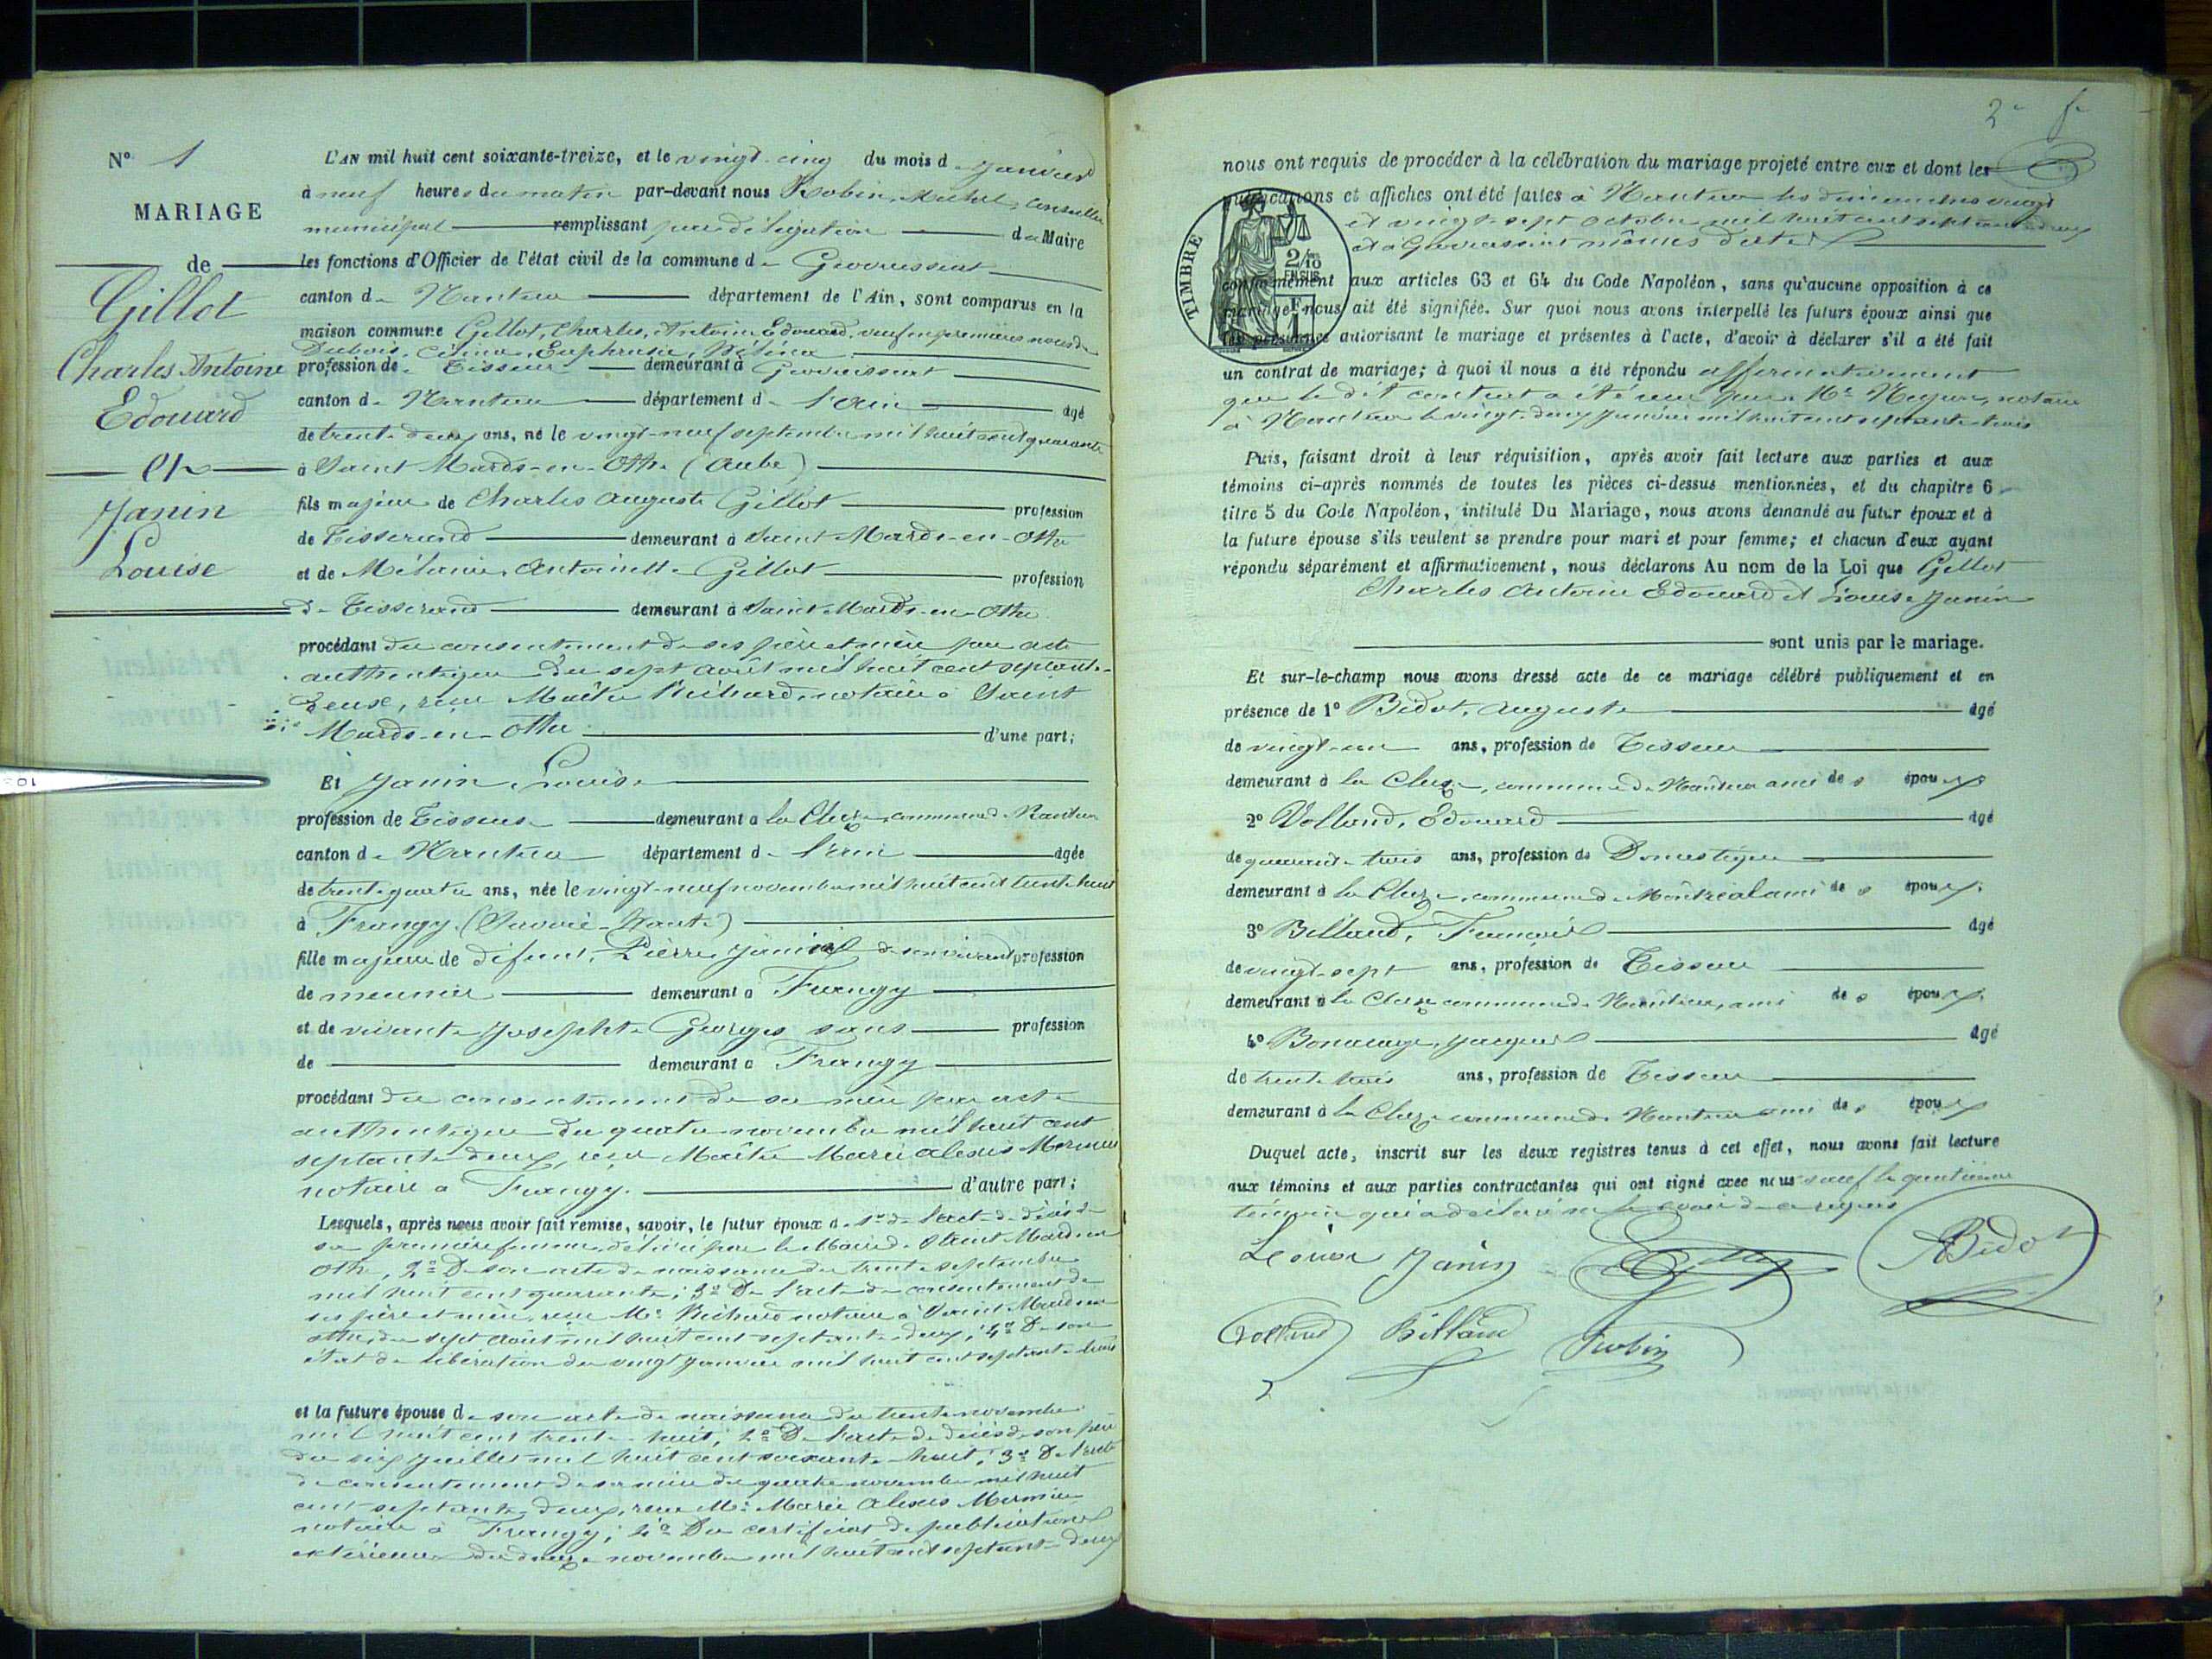 N° 1
MARIAGE
de
Gillot
Charles Antoine
Edouard
et
Janin
Louise
L'AN mil huit cent soixante-treize, et le vingt-cinq du mois de Janvier
à neuf heures du matin par-devant nous Robin, Michel, Conseiller
municipal remplissant par délégation du Maire
les fonctions d'Officier de l'état civil de la commune de Groissiat
canton de Nantua département de l'Ain, sont comparus en la
maison commune Gillot, Charles, Antoine, Edouard, veuf en premières noces de
Dubois, Euphrasie,
profession de Tisseur demeurant à
canton de Nantua département de l'ain âgé
de trente deux ans, né le vingt-neuf septembre mil huit cent quarante
à Saint Mards-en-Othe (Aube)
fils majeur de Charles Auguste Gillot profession
de Tisserand demeurant à Saint Mards-en-Othe
et de Mélanie Antoinette Gillot profession
de Tisserand demeurant à Saint Mards-en-Othe
procédant du consentement de ses père et mère par acte
authentique du sept août mil huit cent septante-
deux, reçu Maître Richard, notaire à Saint
Mards-en-Othe d'une part;
Et Janin, Louise
profession de Tisseuse demeurant à la Cluse, commune de Nantua
canton de Nantua département de l'ain âgée
de trente-quatre ans, née le vingt-neuf novembre mil huit cent trente huit
à Frangy (Savoie-Haute)
fille majeure de défunt Pierre Janin de son vivant profession
de meunier demeurant à Frangy
et de vivante Josephte Georges sans profession
de demeurant à Frangy
procédant du consentement de sa mère par acte
authentique du quatre novembre mil huit cent
septante deux, reçu Maître Marie Alexis Mermier
notaire à Frangy. d'autre part;
Lesquels, après nous avoir fait remise, savoir, le futur époux d. 1° de l'acte de décès de
sa première femme, délivré par le Maire de Saint Mards en
Othe, 2° De son acte de naissance du trente septembre
mil huit cent quarante; 3° De l'acte de consentement de
ses père et mère, reçu Me Richard notaire à Saint Mards en
othe, du sept août mil huit cent septante deux; 4° De son
état de libération du vingt janvier mil huit cent septante trois
et la future épouse de son acte de naissance du trente novembre
mil huit cent trente-huit; 2° De l'acte de décès de son père
du six juillet mil huit cent soixante-huit; 3° De l'acte
de consentement de sa mère du quatre novembre mil huit
cent septante deux, reçu Me Marie Alexis Mermier
notaire à Frangy; 4° Du certificat de publications
extérieures du douze novembre mil huit cent septante-deux
2e f
nous ont requis de procéder à la célébration du mariage projeté entre eux et dont les
publications et affiches ont été faites à Nantua les dimanches vingt
et vingt-sept octobre mil huit cent septante deux
et à mêmes dates
TIMBRE
2/10
EN SUS
conformément aux articles 63 et 64 du Code Napoléon, sans qu'aucune opposition à ce
mariage nous ait été signifiée. Sur quoi nous avons interpellé les futurs époux ainsi que
les personnes autorisant le mariage et présentes à l'acte, d'avoir à déclarer s'il a été fait
un contrat de mariage; à quoi il nous a été répondu affirmativement
que le dit contrat a été reçu par Me notaire
à Nantua le vingt-deux janvier mil huit cent septante-trois
Puis, faisant droit à leur réquisition, après avoir fait lecture aux parties et aux
témoins ci-après nommés de toutes les pièces ci-dessus mentionnées, et du chapitre 6
titre 5 du Code Napoléon, intitulé Du Mariage, nous avons demandé au futur époux et à
la future épouse s'ils veulent se prendre pour mari et pour femme; et chacun d'eux ayant
répondu séparément et affirmativement, nous déclarons Au nom de la Loi que Gillot
Charles Antoine Edouard et Louise Janin
sont unis par le mariage.
Et sur-le-champ nous avons dressé acte de ce mariage célébré publiquement et en
présence de 1° Bidot, Auguste âgé
de vingt-un ans, profession de Tisseur
demeurant à la Cluse, commune de Nantua ami des époux
2° Volland, Edouard âgé
de quarante-trois ans, profession de Domestique
demeurant à la Cluze, commune de Montréal ami des époux.
3° Billaud, François âgé
de vingt-sept ans, profession de Tisseur
demeurant à la Cluse commune de Nantua, ami des époux.
4° Jacques âgé
de trente trois ans, profession de Tisseur
demeurant à la Cluze commune de Nantua ami des époux
Duquel acte, inscrit sur les deux registres tenus à cet effet, nous avons fait lecture
aux témoins et aux parties contractantes qui ont signé avec nous sauf le quatrième
témoin qui a déclaré ne le savoir de ce requis
Louise Janin Gillot ABidot
Volland Billaud Robin